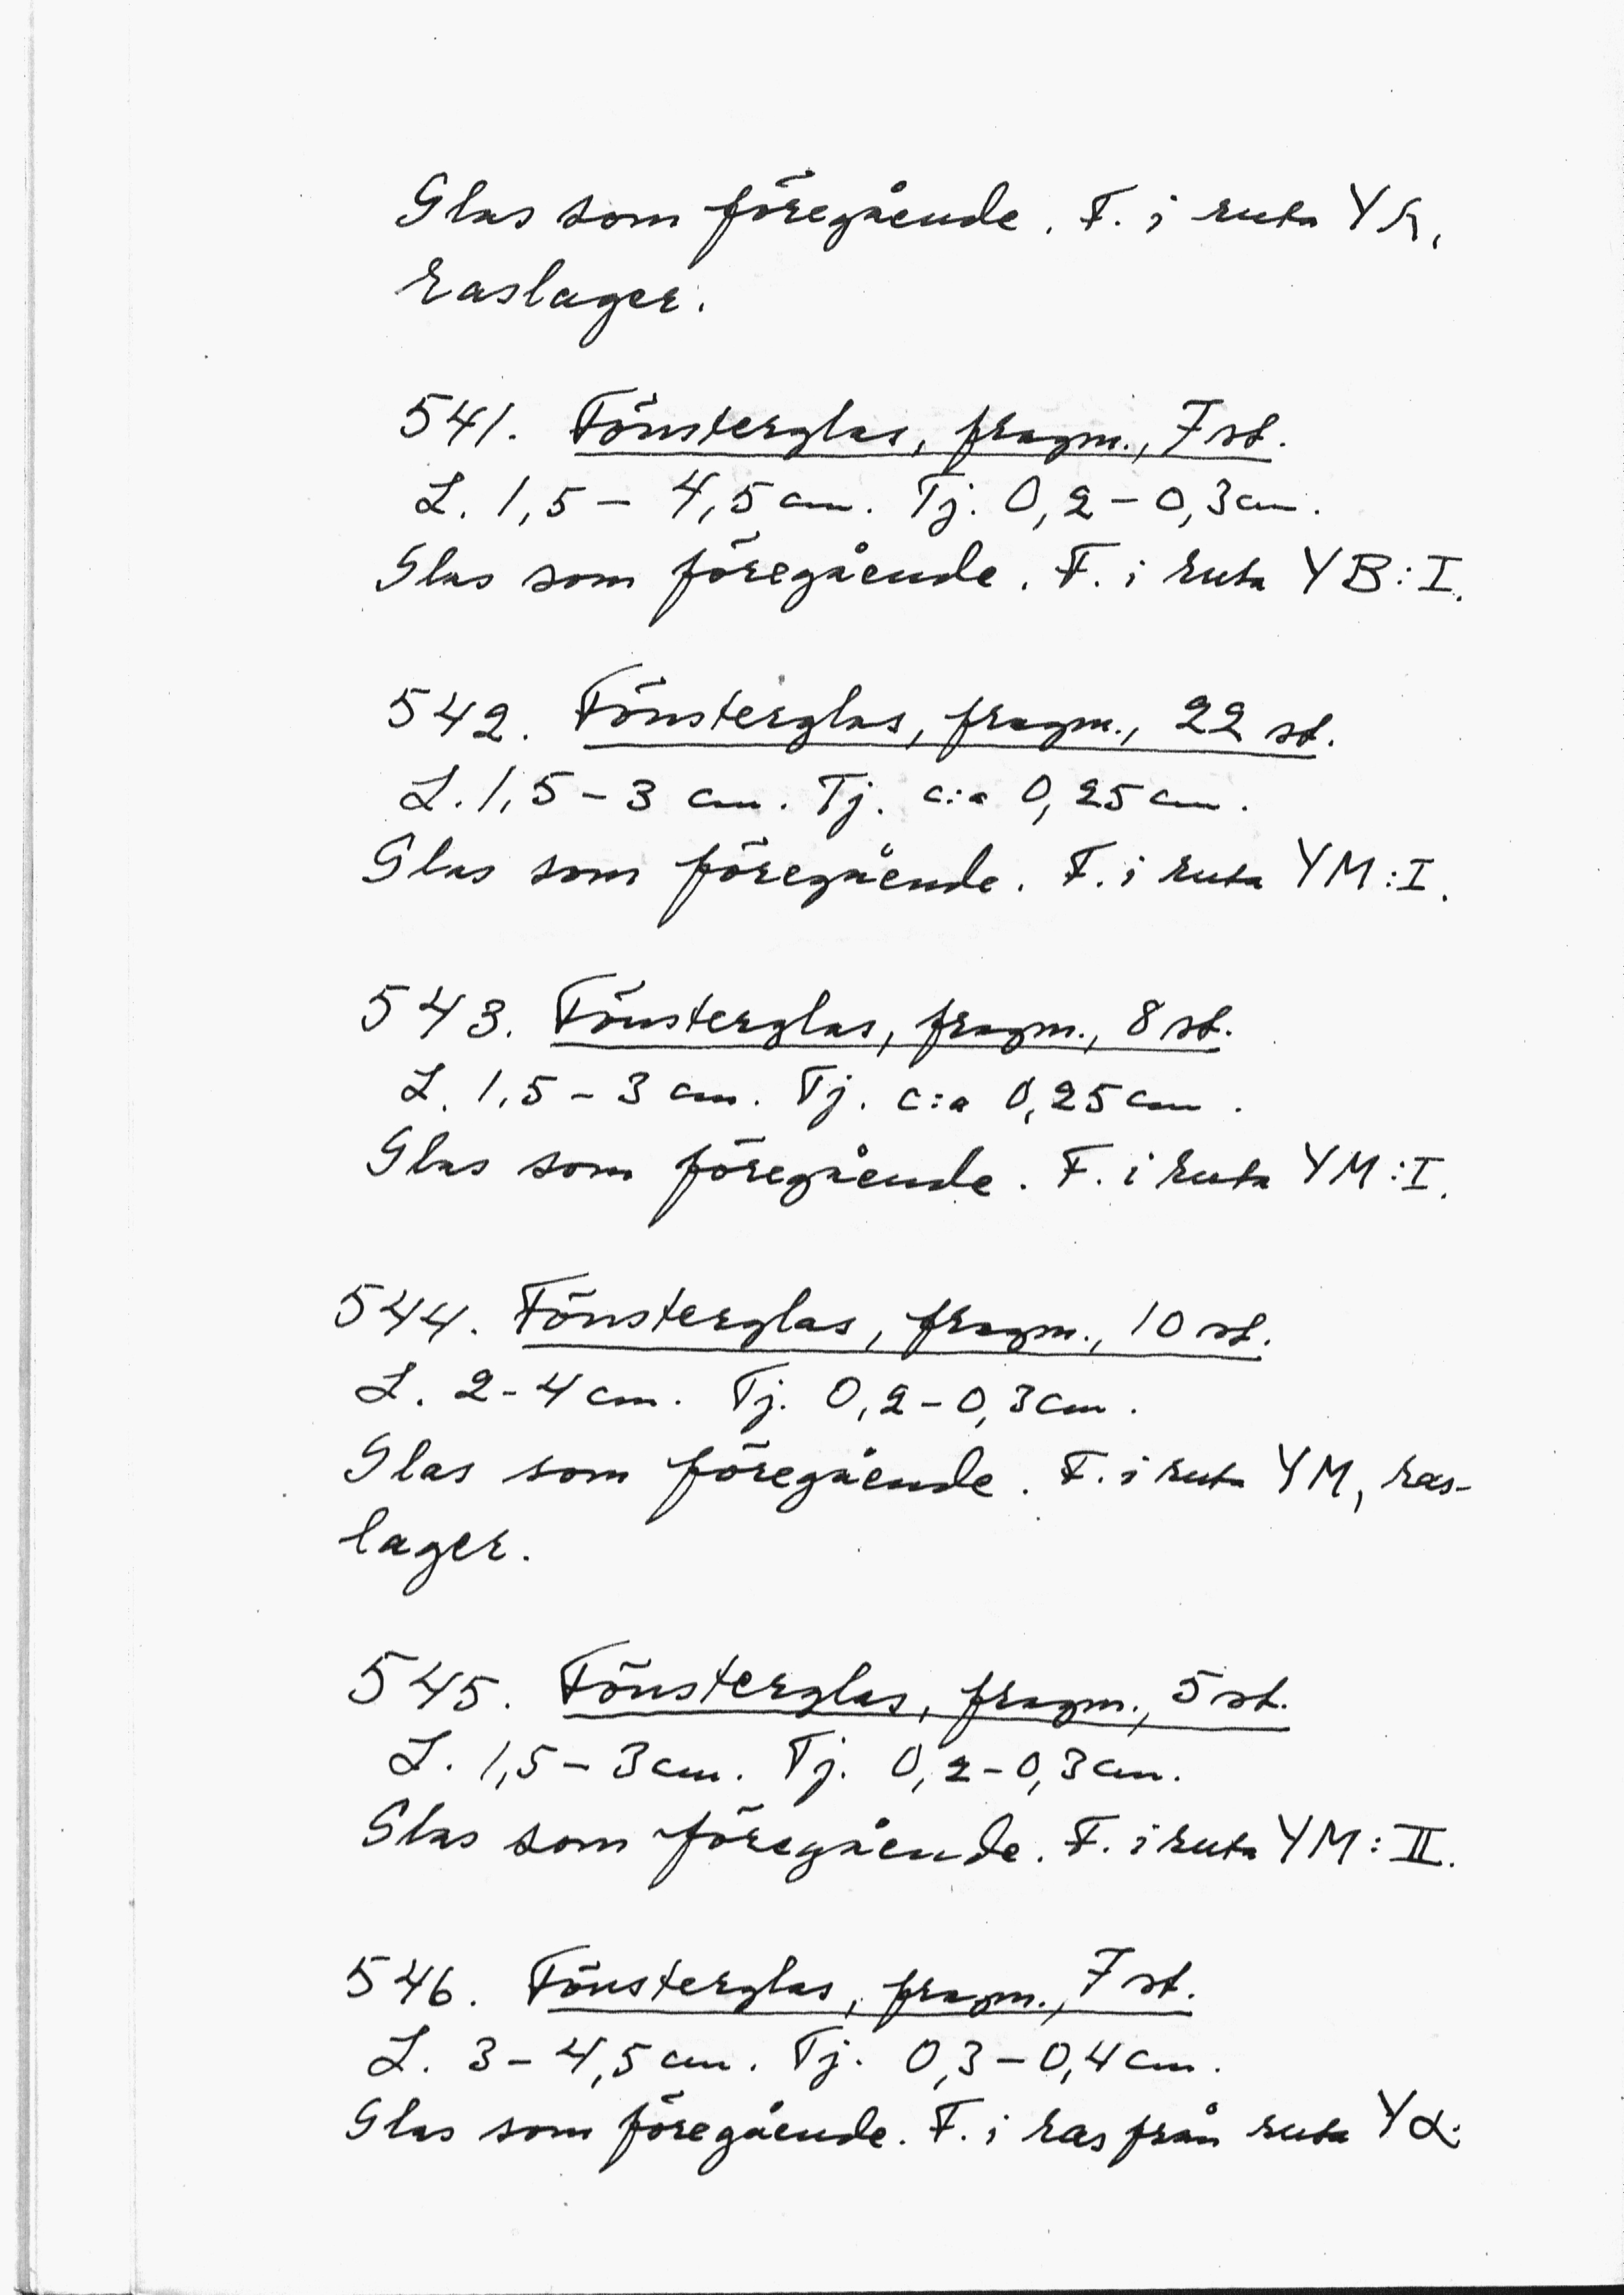 Glas som föregående. F. i ruta Y
raslager.
541. Fönsterglas, fragm., 7 st.
L. 1,5 – 4,5 cm. Tj. 0,2 – 0,3 cm.
Glas som föregående. F. i ruta YB:I.
542. Fönsterglas, fragm., 22 st.
L. 1,5 – 3 cm. Tj. c:a 0,25 cm.
Glas som föregående. F. i ruta YM:I.
543. Fönsterglas, fragm., 8 st.
L. 1,5 – 3 cm. Tj. c:a 0,25 cm.
Glas som föregående. F. i ruta YM:I.
544. Fönsterglas, fragm., 10 st.
L. 2 - 4 cm. Tj. 0,2 – 0,3 cm.
Glas som föregående. F. i ruta YM, ras-
lager.
545. Fönsterglas, fragm., 5 st.
L. 1,5 – 3 cm. Tj. 0,2 – 0,3 cm.
Glas som föregående. F. i ruta YM:II.
546. Fönsterglas, fragm., 7 st.
L. 3 – 4,5 cm. Tj. 0,3 – 0,4 cm.
Glas som föregående. F. i ras från ruta Yα.